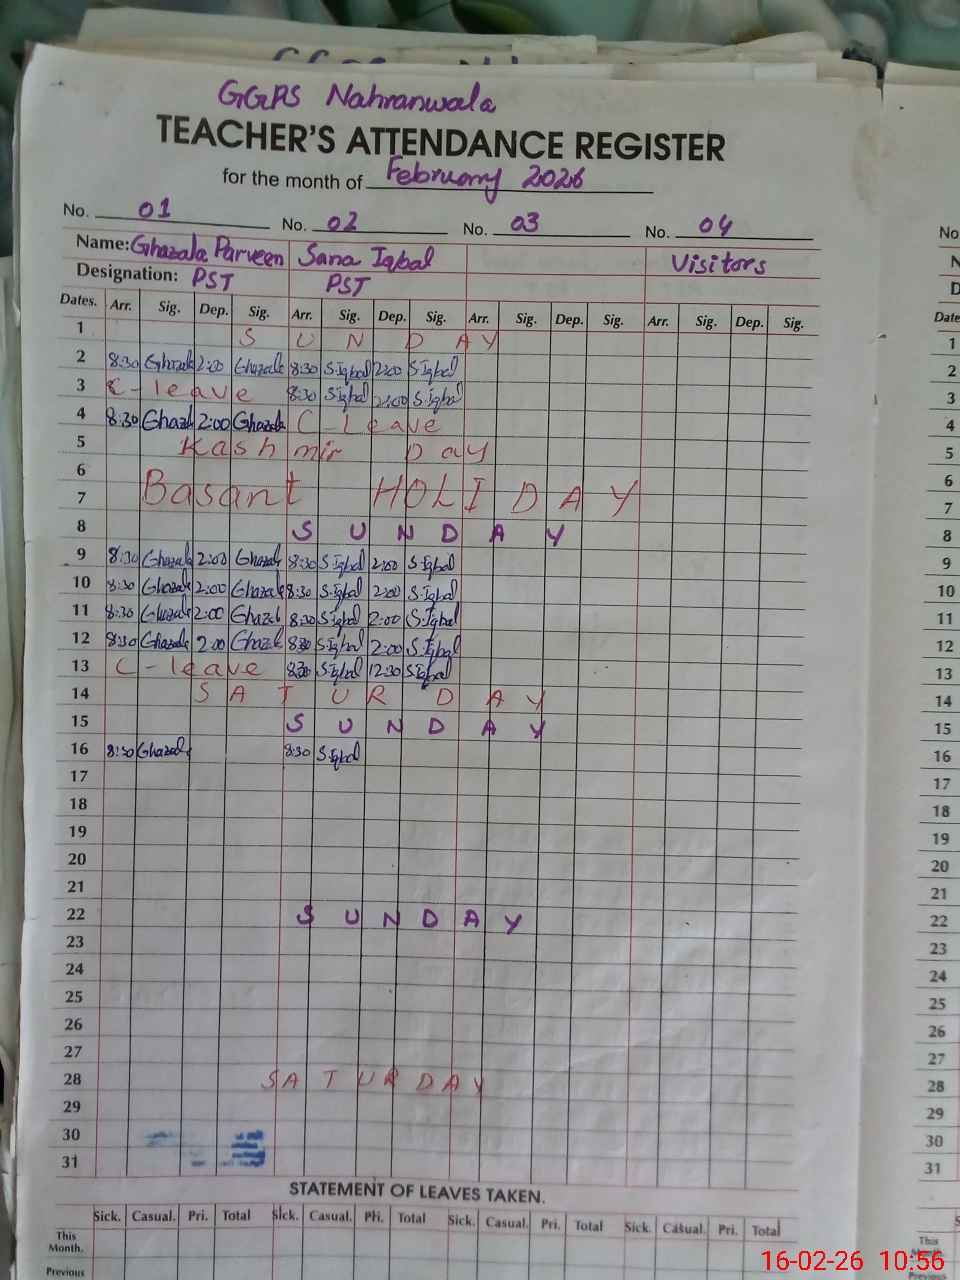 GGPS Nahranwala
TEACHER'S ATTENDANCE REGISTER
for the month of February 2026
No. 01 No. 02 No. 03 No. 04
Name: Ghazala Parveen Sana Iqbal Visitors
Designation: PST PST
Dates. Arr. Sig. Dep. Sig. Arr. Sig. Dep. Sig. Arr. Sig. Dep. Sig. Arr. Sig. Dep. Sig.
1 SUNDAY 1
2 8:30 Ghazala 2:00 Ghazala 8:30 S.Iqbal 2:00 S.Iqbal 2
3 C-leave 8:30 S.Iqbal 2:00 S.Iqbal 3
4 8:30 Ghazal 2:00 Ghazala C-Leave 4
5 Kashmir Day 5
6 6
7 Basant HOLIDAY 7
8 SUNDAY 8
9 8:30 Ghazala 2:00 Ghazala 8:30 S.Iqbal 2:00 S.Iqbal 9
10 8:30 Ghazala 2:00 Ghazala 8:30 S.Iqbal 2:00 S.Iqbal 10
11 8:30 Ghazala 2:00 Ghazal 8:30 S.Iqbal 2:00 S.Iqbal 11
12 8:30 Ghazala 2:00 Ghazal 8:30 S.Iqbal 2:00 S.Iqbal 12
13 C-leave 8:30 S.Iqbal 12:30 S.Iqbal 13
14 SATURDAY 14
15 SUNDAY 15
16 8:30 Ghazala 8:30 S.Iqbal 16
17 17
18 18
19 19
20 20
21 21
22 SUNDAY 22
23 23
24 24
25 25
26 26
27 27
28 SATURDAY 28
29 29
30 30
31 31
STATEMENT OF LEAVES TAKEN.
Sick. Casual. Pri. Total Sick. Casual. Pri. Total Sick. Casual. Pri. Total Sick. Casual. Pri. Total
This Month. This Month.
Previous Previous
16-02-26 10:56